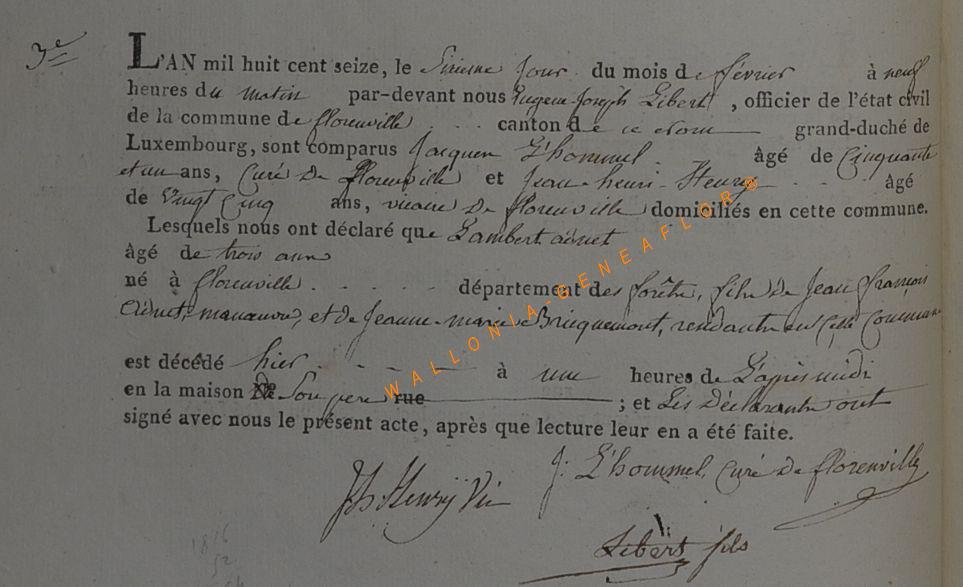 3e
L'AN mil huit cent seize, le Sixieme jour du mois de février à neuf
heures du matin par-devant nous Eugene Joseph Libert, officier de l'état civil
de la commune de florenville canton de ce nom grand-duché de
Luxembourg, sont comparus Jacques L'hommel âgé de Cinquante
et un ans, Curé De florenville et Jean-henri-Henry âgé
de Vingt Cinq ans, vicaire De florenville domiciliés en cette commune.
Lesquels nous ont déclaré que Lambert
âgé de trois ans
né à florenville département des forêts, fils De Jean françois
manœuvre, et de Jeanne-marie Bricquemont, en Cette Commune
est décédé hier à une heures de L'après midi
en la maison De Son pere rue ; et Les Déclarants ont
signé avec nous le présent acte, après que lecture leur en a été faite.
J: L'hommel, Curé De florenville
Jh Henry Vic
Libert fils
1816
WALLONIA-GENEAFLOR®